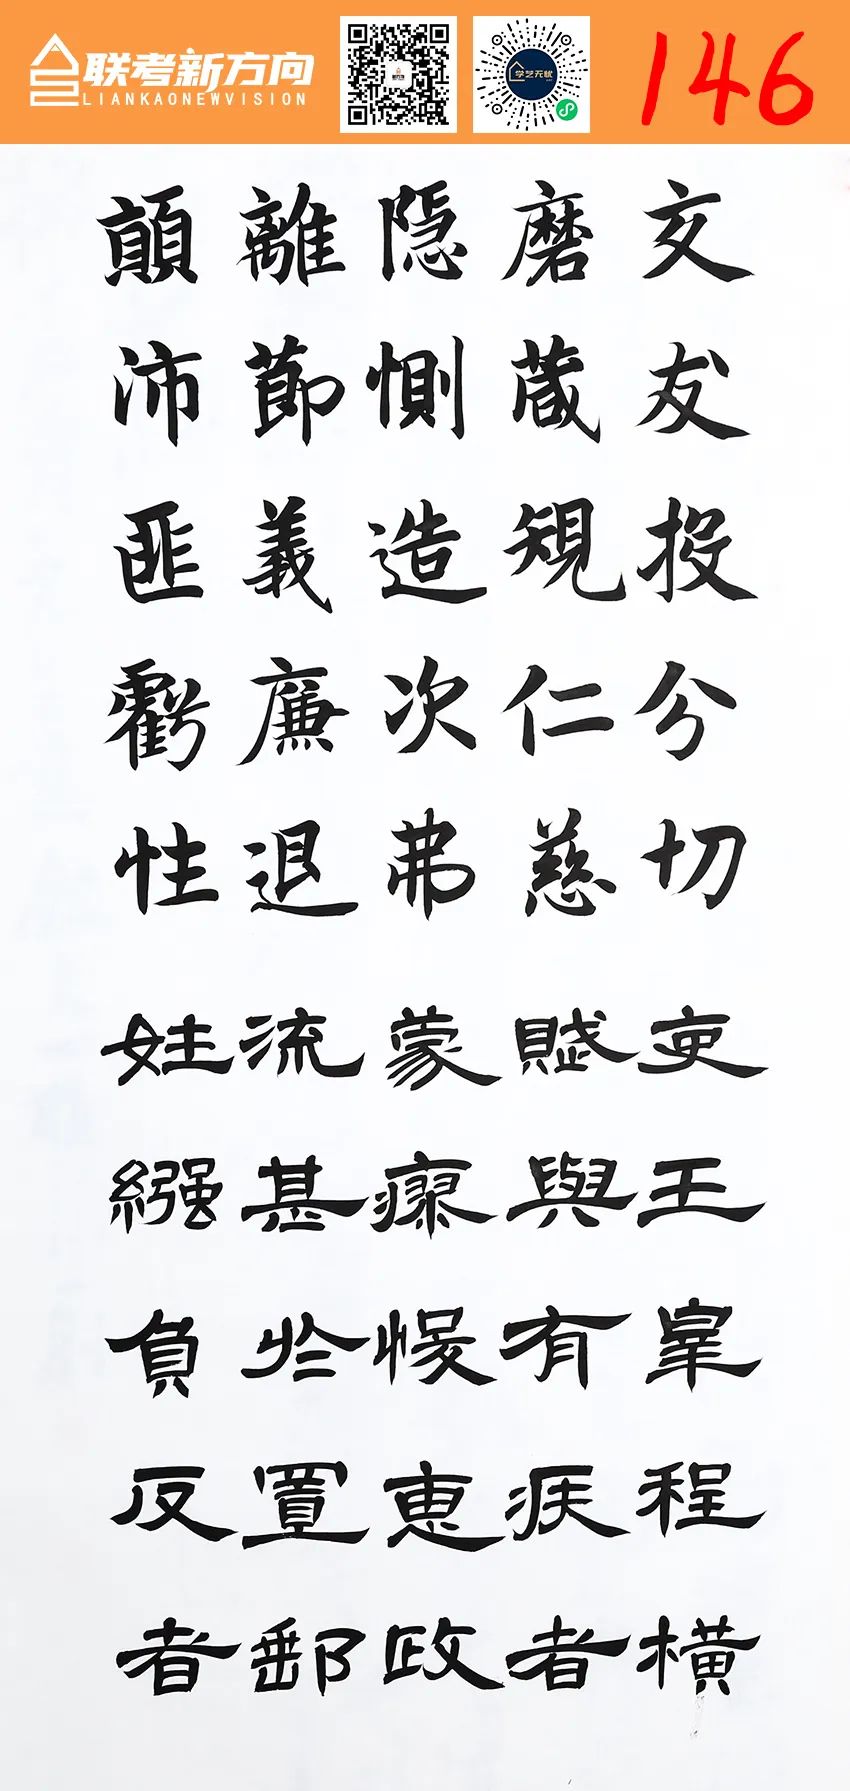 联考新方向
LIANKAONEWVISION
学艺无忧
146
交友投分切
磨箴規仁慈
隐惻造次弗
離節義廉退
顛沛匪虧性
吏王皋程橫
賦與有疾者
蒙瘳悛惠政
流甚於置郵
姓繈負反者